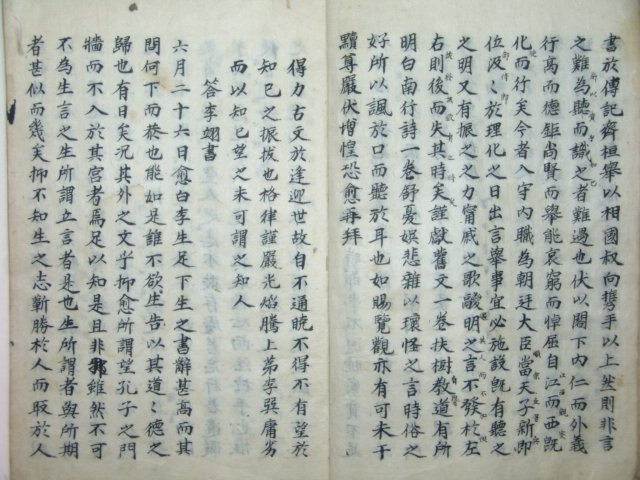 書於傳記齊桓舉以相國叔向携手以上然則非言
之難為聽而識之者難遇也伏以閤下內仁而外義
行高而德鉅尚賢而舉能哀窮而悼屈自江而西既
化而行矣今者入守內職為朝廷大臣當天子新即
位汲〻於理化之日出言舉事宜必施設既有聽之
之明又有振之之力甯戚之歌鬷明之言不發於左
右則後而失其時矣謹獻舊文一卷扶樹教道有所
明白南行詩一卷舒憂娛悲雜以瓌怪之言時俗之
好所以諷於口而聽於耳也如賜覽觀亦有可采干
黷尊嚴伏增惶恐愈再拜
得力古文於逢迎世故自不通晩不得不有望於
知己之振拔也格律謹嚴光焰騰上弟李巽庸劣
而以知己望之未可謂之知人
答李翊書
六月二十六日愈白李生足下生之書辭甚高而其
問何下而恭也能如是誰不欲生告以其道〻德之
歸也有日矣況其外之文乎抑愈所謂望孔子之門
牆而不入於其宮者焉足以知是且非邪雖然不可
不為生言之生所謂立言者是也生所謂者與所期
者甚似而幾矣抑不知生之志蘄勝於人而取於人